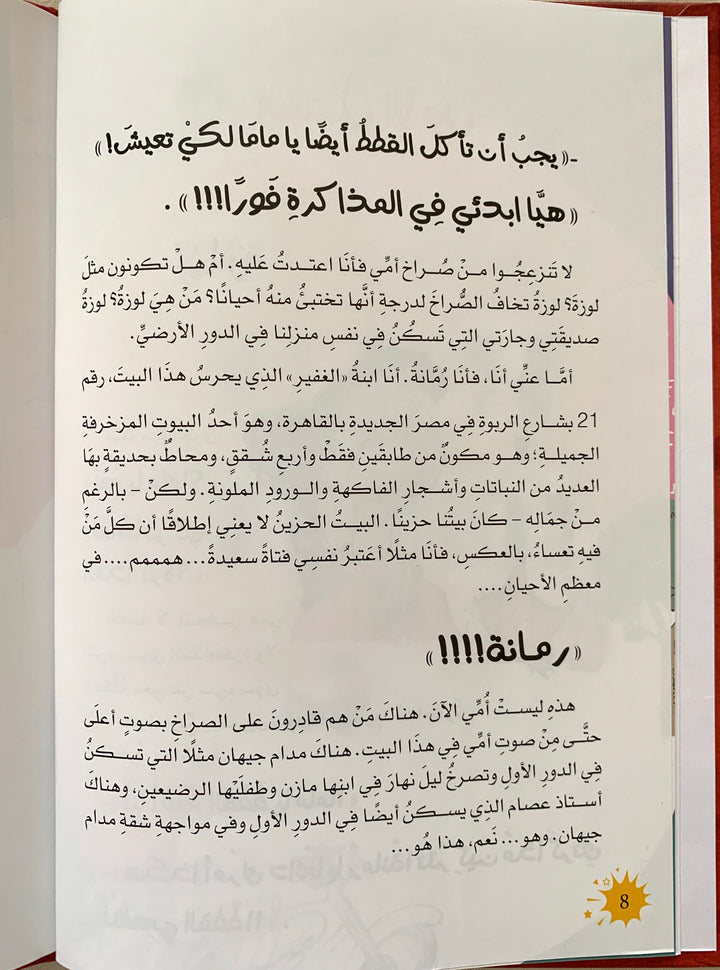 -«يجبُ أن تأكلَ القططُ أيضًا يا مامَا لكيْ تعيشَ!»
«هيَّا ابدئي فِي المذاكرةِ فَورًا!!!!».
لا تَنزعِجُوا منْ صُراخ أمِّي فأنَا اعتدتُ عَليهِ. أمْ هلْ تكونون مثلَ
لوزةَ؟ لوزةُ تخافُ الصُّراخَ لدرجةِ أنَّها تختبئُ منهُ أحيانًا؟ مَنْ هِيَ لوزةُ؟ لوزةُ
صديقَتِي وجارَتي التِي تَسكُنُ فِي نفسِ منزلِنا فِي الدورِ الأرضيِّ.
أمَّا عنِّي أنَا، فأنَا رُمَّانةُ. أنَا ابنةُ «الغفيرِ» الذِي يحرسُ هذَا البيتَ، رقم
21 بشارعِ الربوةِ فِي مصرَ الجديدةِ بالقاهرة، وهوَ أحدُ البيوتِ المزخرفةِ
الجميلةِ؛ وهو مكونٌ من طابقَينِ فقَطْ وأربعِ شُققٍ، ومحاطٌ بحديقةٍ بهَا
العديدُ من النباتاتِ وأشجارِ الفاكهةِ والورودِ الملونةِ. ولكنْ – بالرغم
منْ جمَاله – كانَ بيتُنا حزينًا. البيتُ الحزينُ لا يعنِي إطلاقًا أن كلَّ مَنْ
فيهِ تعساءُ، بالعكسِ، فأنَا مثلًا أعتبرُ نفسِي فتاةً سعيدةً... همممم.... في
معظمِ الأحيانِ....
«رمانة!!!!»
هذهِ ليستْ أُمِّي الآنَ. هناكَ مَنْ هم قادِرونَ على الصراخِ بصوتٍ أعلَى
حتَّى مِنْ صوتِ أمِّي فِي هذَا البيتِ. هناكَ مدام جيهان مثلًا التي تسكنُ
فِي الدورِ الأولِ وتصرخُ ليلَ نهارَ فِي ابنِها مازن وطفلَيْها الرضيعينِ، وهناكَ
أستاذ عصام الذِي يسكنُ أيضًا فِي الدورِ الأولِ وفي مواجهةِ شقةِ مدام
جيهان. وهو... نَعم، هذا هُو...
8